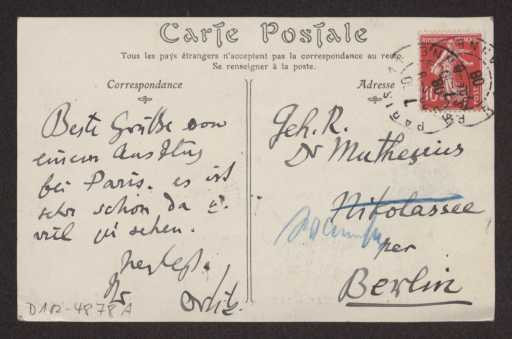 Carte Postale
Tous les pays étrangers n'acceptent pas la correspondance au recto
Se renseigner à la poste.
Correspondance
Adresse
Beste Grüße von
einem Ausflug
bei Paris. es ist
sehr schön da u.
viel zu sehen.
Geh. R.
Dr Muthesius
Nikolassee
per
Berlin
D102-4878A
PARIS